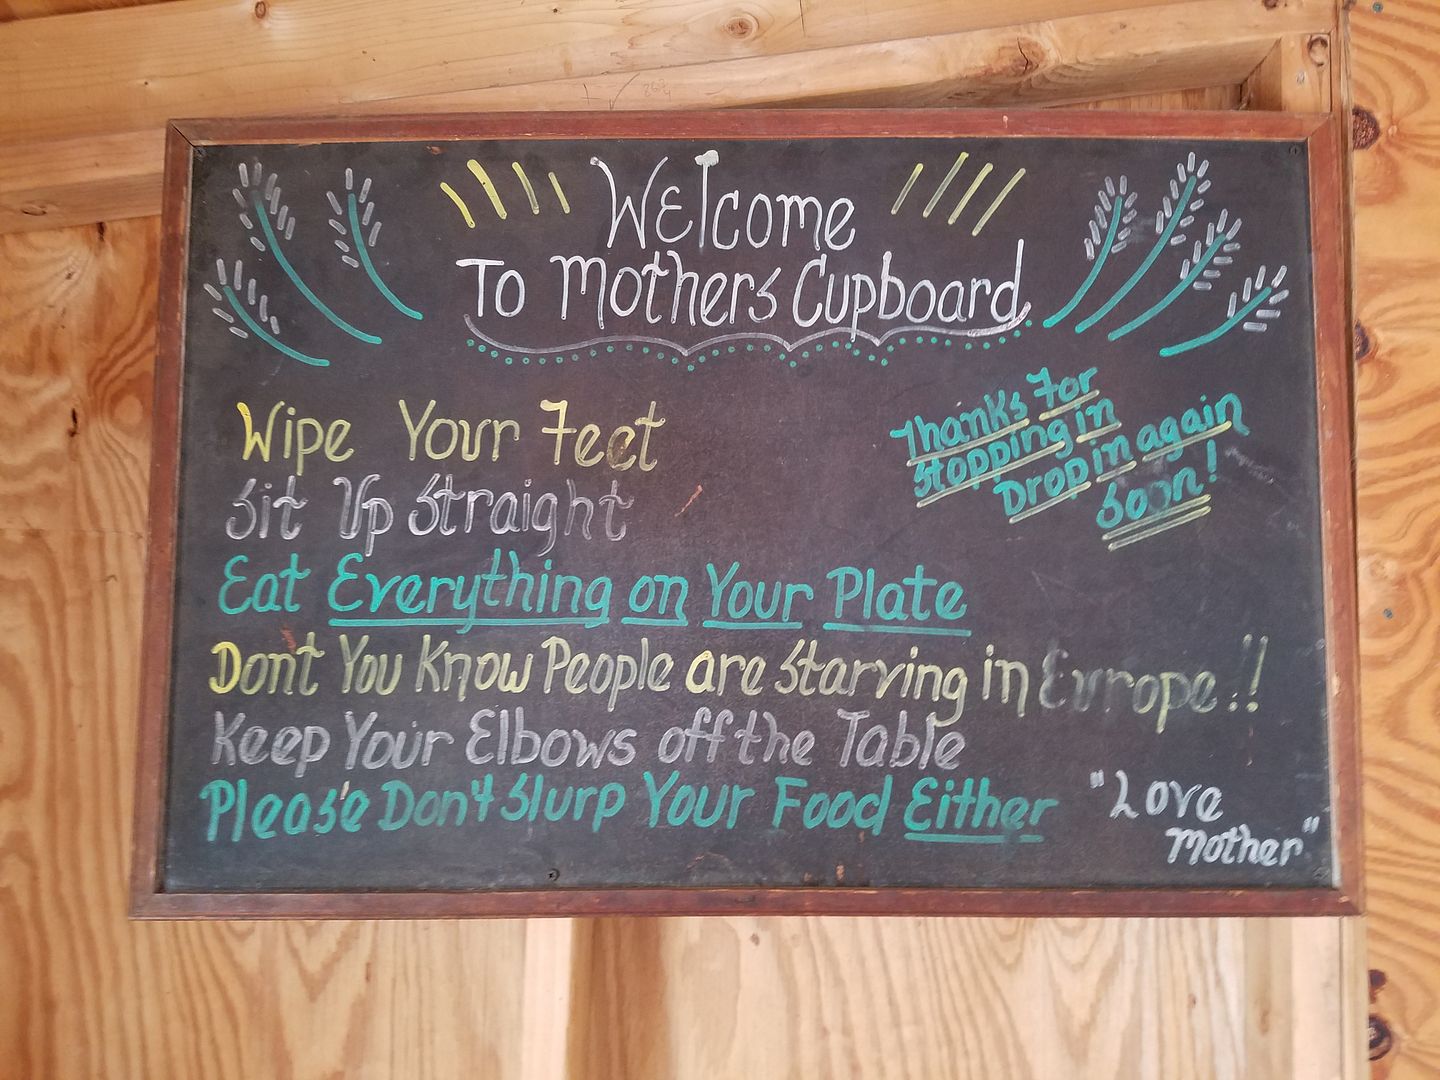 Welcome
To Mothers Cupboard
Thanks For
Stopping in
Drop in again
Soon!
Wipe Your Feet
Sit Up Straight
Eat Everything on Your Plate
Dont You Know People are Starving in Europe!!
Keep Your Elbows off the Table
Please Don't Slurp Your Food Either
"Love
Mother"